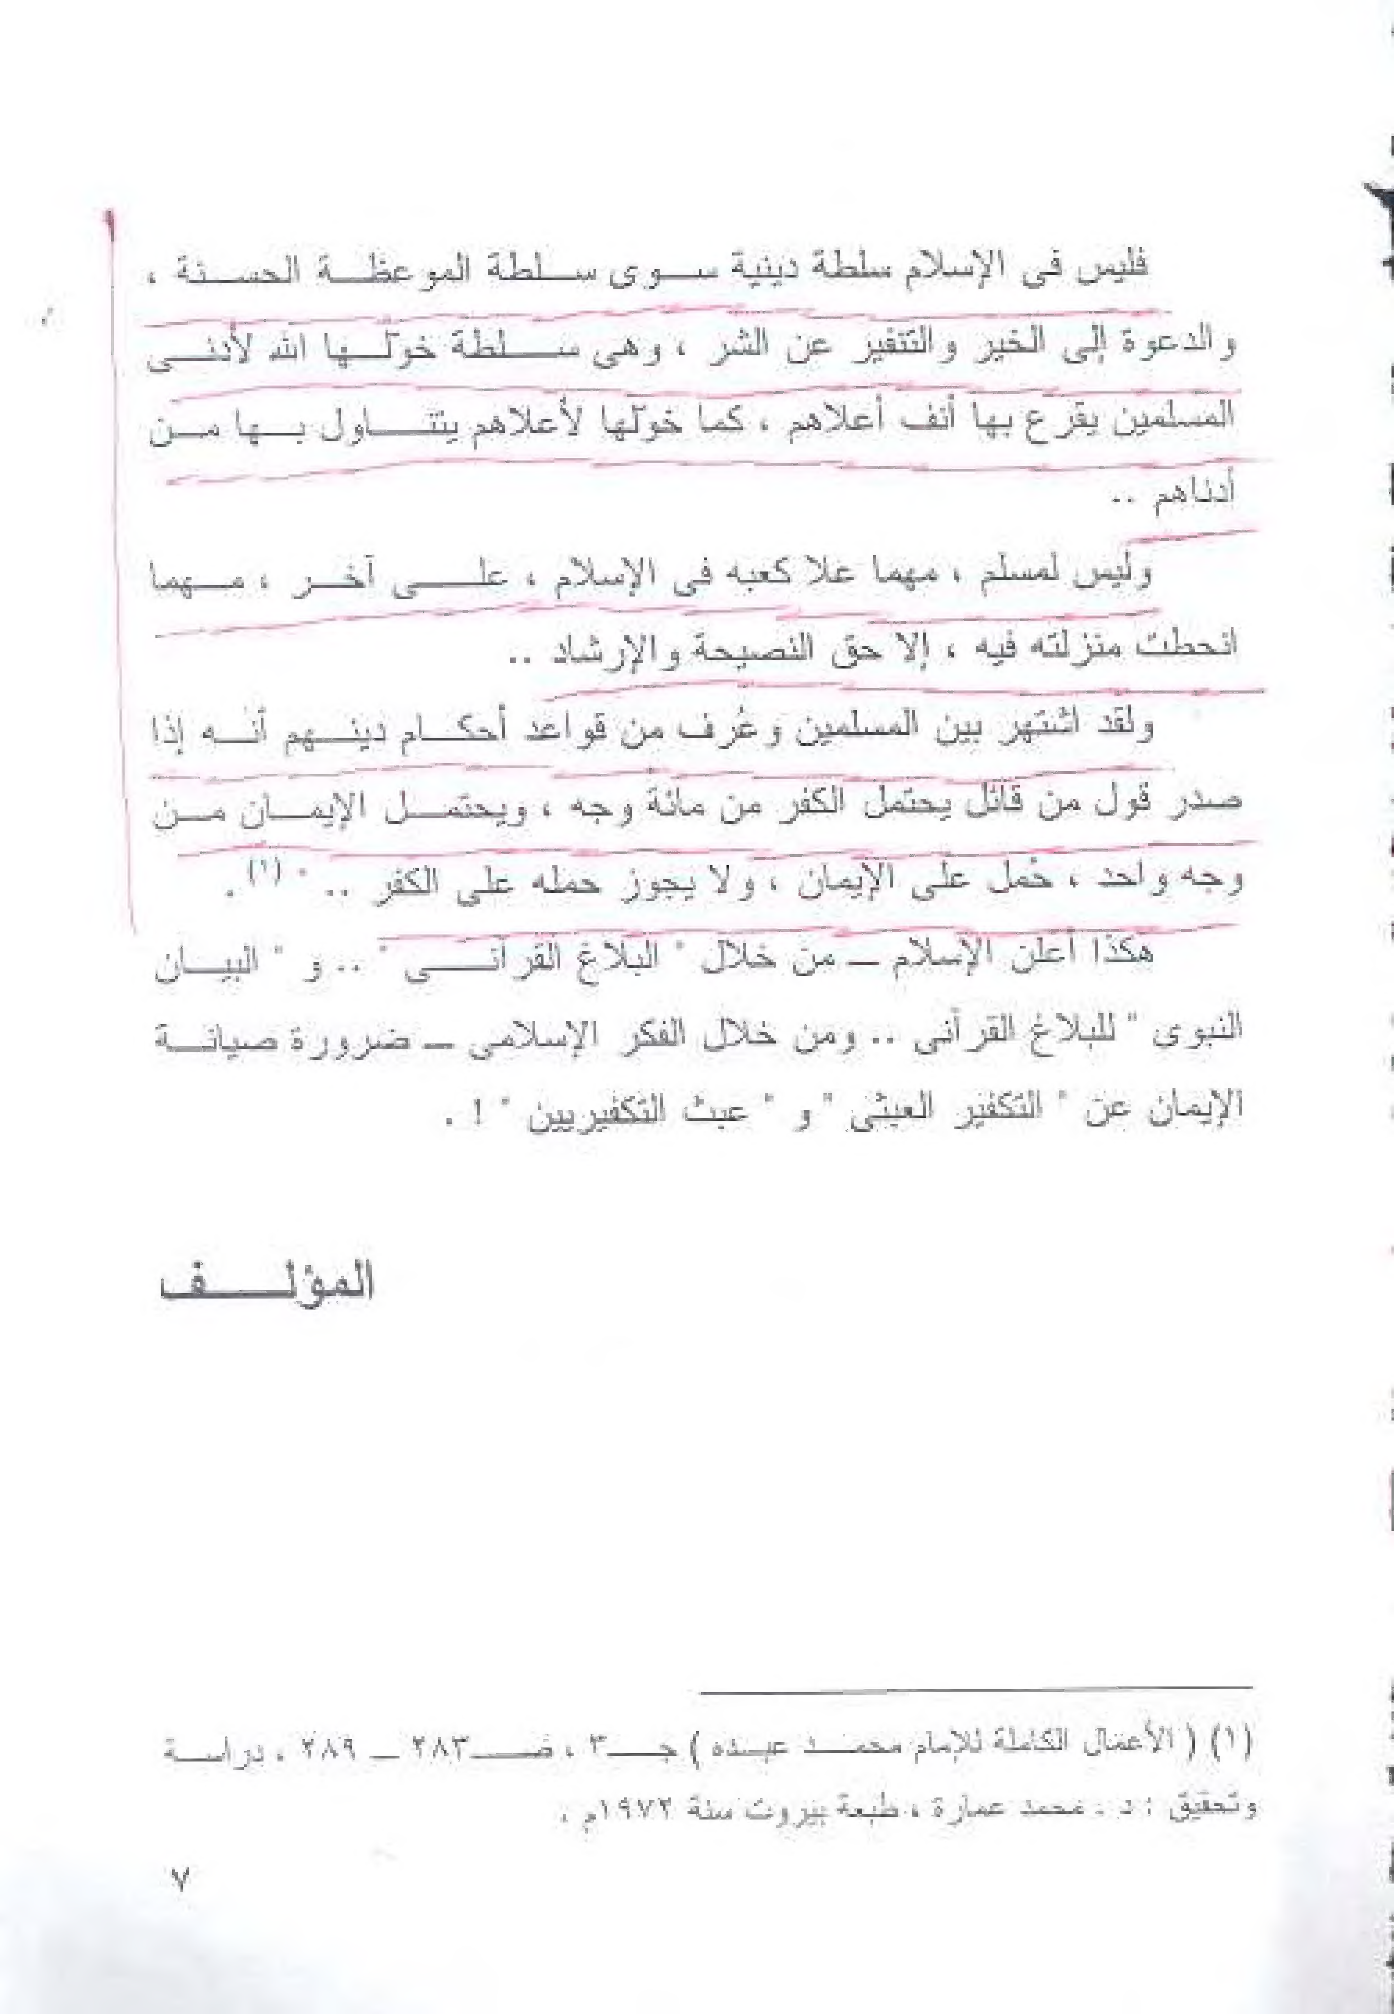 فليس فى الإسلام سلطة دينية سوى سلطة الموعظة الحسنة ،
والدعوة إلى الخير والتنفير عن الشر ، وهى سلطة خوّلها الله لأدنى
المسلمين يقرع بها أنف أعلاهم ، كما خوّلها لأعلاهم يتناول بها من
أدناهم ..
وليس لمسلم ، مهما علا كعبه فى الإسلام ، على آخر ، مهما
انحطت منزلته فيه ، إلا حق النصيحة والإرشاد ..
ولقد اشتهر بين المسلمين وعُرف من قواعد أحكام دينهم أنه إذا
صدر قول من قائل يحتمل الكفر من مائة وجه ، ويحتمل الإيمان من
وجه واحد ، حُمل على الإيمان ، ولا يجوز حمله على الكفر .. " (١) .
هكذا أعلن الإسلام – من خلال " البلاغ القرآنى " .. و " البيان
النبوى " للبلاغ القرآنى .. ومن خلال الفكر الإسلامى – ضرورة صيانة
الإيمان عن " التكفير العبثى " و " عبث التكفيريين " ! .
المؤلف
(١) ( الأعمال الكاملة للإمام محمد عبده ) جـ٣ ، صـ٢٨٣ – ٢٨٩ ، دراسة
وتحقيق : د . محمد عمارة ، طبعة بيروت سنة ١٩٧٢م .
٧